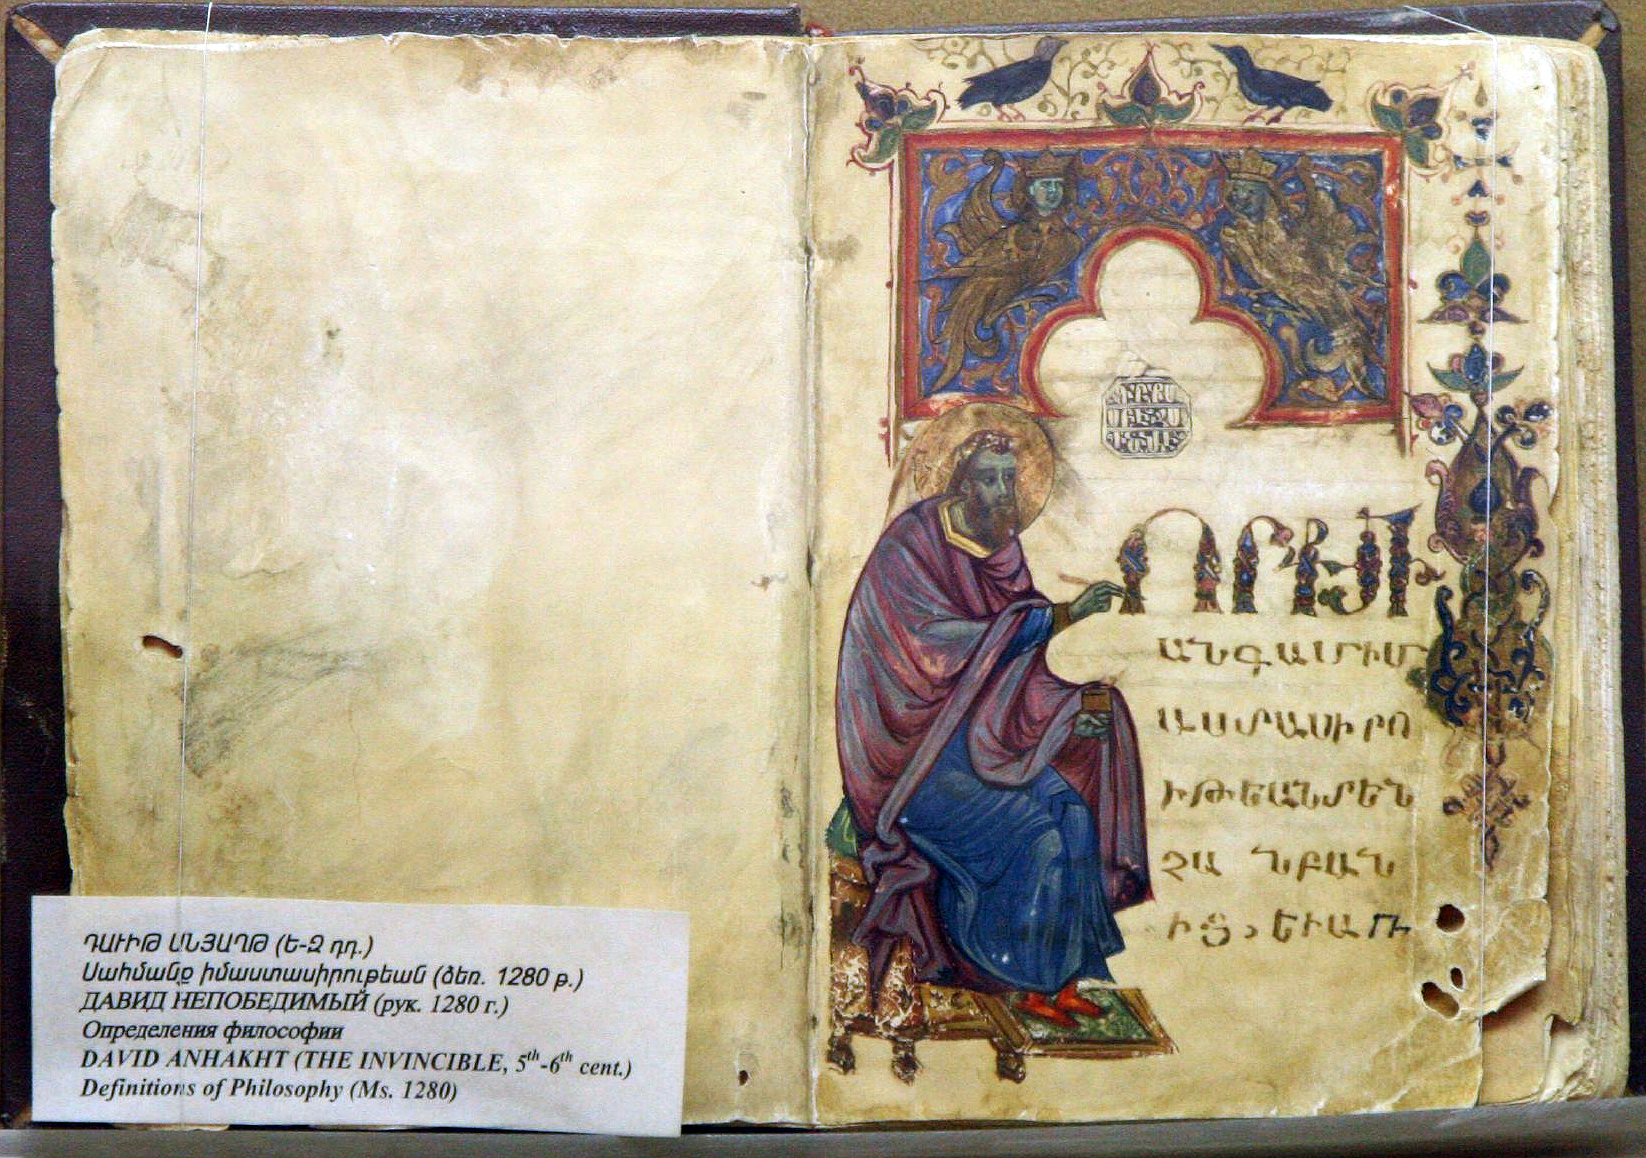 ՈՐՔՄԻ
ԱՆԳԱՄԻՄ
ԱՍՏԱՍԻՐՈ
ՒԹԵԱՆՄԵՆ
ՋԱ ՆԲԱՆ
ԴԱՒԻԹ ԱՆՅԱՂԹ (Ե-Զ դդ.)
Սահմանք իմաստասիրութեան (ձեռ. 1280 թ.)
ДАВИД НЕПОБЕДИМЫЙ (рук. 1280 г.)
Определения философии
DAVID ANHAKHT (THE INVINCIBLE, 5th-6th cent.)
Definitions of Philosophy (Ms. 1280)